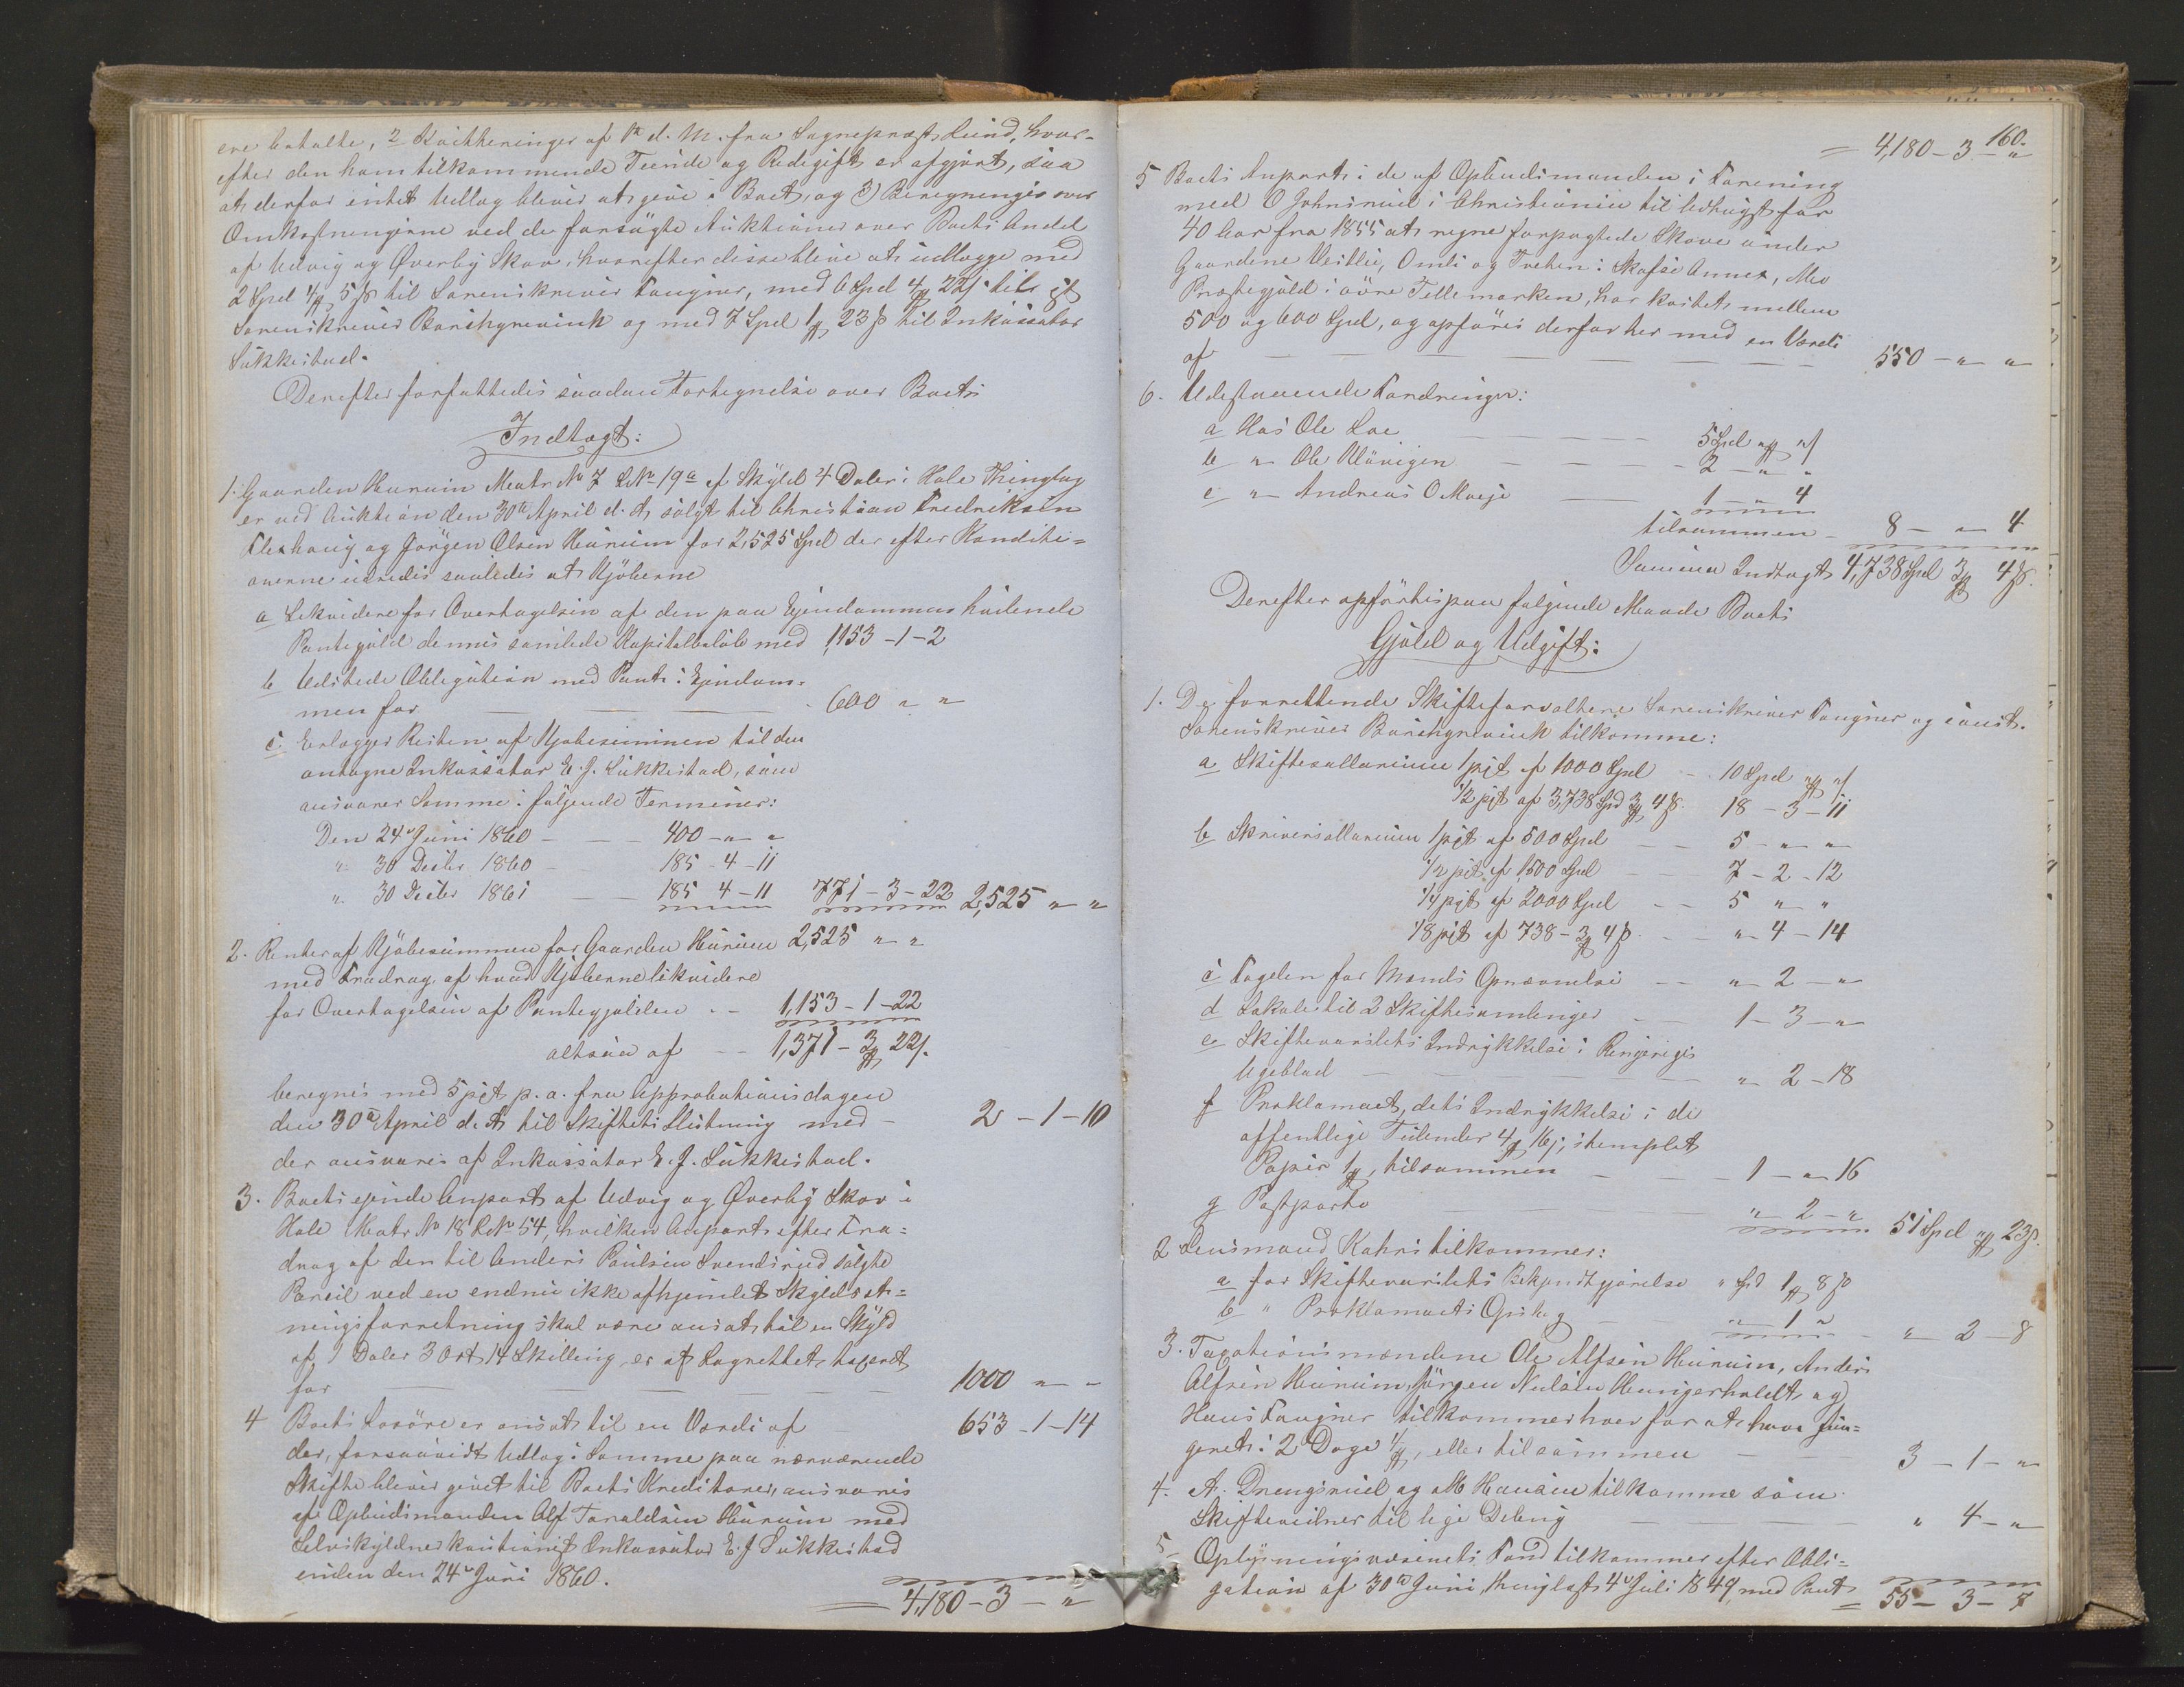 ere betalte, 2 Kvitteringer af 1ste d. M. fra Sogneprest Lund, hvor-
efter den ham tilkommende Tiende og Redegift er afgjort, saa
at derfor intet Udlæg bliver at give i Boet, og 3) Beregninger over
Omkostningerne ved de forsøgte Auktioner over Boets Andel
af Udvig og Øverby Skov, hvorefter disse blive at udlægge med
2 Spd 4 # 5 ß til Sorenskriver Faugner, med 6 Spd 4 # 22 ß til
Sorenskriver Borchgrevink og med 7 Spd 1 # 23 ß til Inkassator
Lukkestad.
Derefter forfattedes saadan Fortegnelse over Boets
Indtægt:
1. Gaarden Hurum Matr No 7 L No 19a af Skyld 4 Daler i Hole Thinglag
er ved Auktion den 30te April d. A. solgt til Christian Fredriksen
Fleshaug og Jørgen Olsen Hurum for 2,525 Spd der efter Konditi=
onerne udredes saaledes at Kjøberne
a Likvidere for Overtagelsen af den paa Ejendommen hvilende
Pantegjæld dennes samlede Kapitalbeløb med 1,153-1-2
b Udstede Obligation med Pant i Ejendom=
men for — — 600 " "
c Erlægger Resten af Kjøbesummen til den
antagne Inkassator E. J. Lukkestad, som
ansvarer Samme i følgende Terminer:
Den 24de Juni 1860 — — 400 - " "
" 30 Decbr 1860 — 185 - 4 - 11
" 30 Decbr 1861 — — 185 4 - 11 771 - 3 - 22 2,525 " "
2. Renter af Kjøbesummen for Gaarden Hurum 2,525 " "
med Fradrag af hvad Kjøberne likvidere
for Overtagelsen af Pantegjælden - - 1,153 - 1 - 22
altsaa af - - 1,371 - 3 # 22 ß.
beregnes med 5 pct p. a. fra Approbationsdagen
den 30te April d. A. til Skiftets Slutning med - 2 - 1 - 10
der ansvares af Inkassator E. J. Lukkestad.
3. Boets ejende Anpart af Udvig og Øverby Skov i
Hole Matr No 18 L No 54, hvilken Anpart efter Fra=
drag af den til Anders Paulsen Svendsrud solgte
Parsel ved en endnu ikke afhjemlet Skyldsæt=
ningsforretning skal være ansat til en Skyld
af 1 Daler 3 Ort 14 Skilling, er af Lagrettet taxeret
for — — — — 1000 " "
4 Boets Løsøre er ansat til en Værdi af — 653 - 1 - 14
der, forsaavidt Udlæg i Samme paa nærværende
Skifte bliver givet til Boets Kreditorer, ansvares
af Opbudsmanden Alf Taraldsen Hurum med
Selvskyldnerkaution af Inkassator E. J. Lukkestad
inden den 24de Juni 1860.
= 4,180 - 3 - "
160.
= 4,180 - 3 - "
5 Boets Anpart i de af Opbudsmanden i Forening
med O Johnsrud i Christiania til Udhugst for
40 Aar fra 1855 at regne forpagtede Skove under
Gaardene Veitlie, Omli og Tveten i Skafse Annex, Mo
Præstegjeld i øvre Tellemarken, har kostet mellem
500 og 600 Spd, og opføres derfor her med en Værdi
af — — — — — 550 - " "
6. Udestaaende Fordringer:
a Hos Ole Loe — — — — 5 Spd " # " ß
b " Ole Ulvigen — — — 2 - " "
c " Andreas O Moeje — 1 - " 4
tilsammen - 8 - " - 4
Summa Indtægt 4,738 Spd 3 # 4 ß.
Derefter opførtes paa følgende Maade Boets
Gjæld og Udgift:
1. De forrettende Skifteforvaltere Sorenskriver Faugner og const.
Sorenskriver Borchgrevink tilkomme:
a Skiftesallarium 1 pct af 1000 Spd - 10 Spd " # " ß
1/2 pct af 3,738 Spd 3 # 4 ß. 18 - 3 - 11
b Skriversallarium 1 pct af 500 Spd — 5 - " - "
1/2 pct af 1,500 Spd — 7 - 2 - 12
1/4 pct af 2000 Spd — 5 " "
1/8 pct af 738 - 3 # 4 ß. — " - 4 - 14
c Fogden for Mænds Opnævnelse — " - 2 - "
d Lokale til 2 Skiftesamlinger — 1 - 3 - "
e Skiftevarslets Indrykkelse i Ringeriges
Ugeblad — — — — " 2 - 18
f Proklamaet, dets Indrykkelse i de
offentlige Tidender 4 # 16 ß; stemplet
Papir 1 #, tilsammen — — 1 - " - 16
g Postporto — — " - 2 - " 51 Spd " # 23 ß.
2 Lensmand Kahrs tilkommer:
a for Skiftevarslets Bekjendtgjørelse " Spd 1 # 8 ß
b " Proklamaets Opslag — " - 1 " " - 2 - 8
3. Taxationsmændene Ole Alfsen Hurum, Anders
Alfsen Hurum, Jørgen Nielsen Hungerholdt og
Hans Faugner tilkommer hver for at have fun=
geret i 2 Dage 4 #, eller tilsammen — 3 - 1 - "
4. A. Drengsrud og M Hansen tilkomme som
Skiftevidner til lige Deling — — " 4 - "
5 Oplysningsvæsenets Fond tilkommer efter Obli=
gation af 30te Juni, thinglæst 4de Juli 1849, med Pant
= 55 - 3 - 7